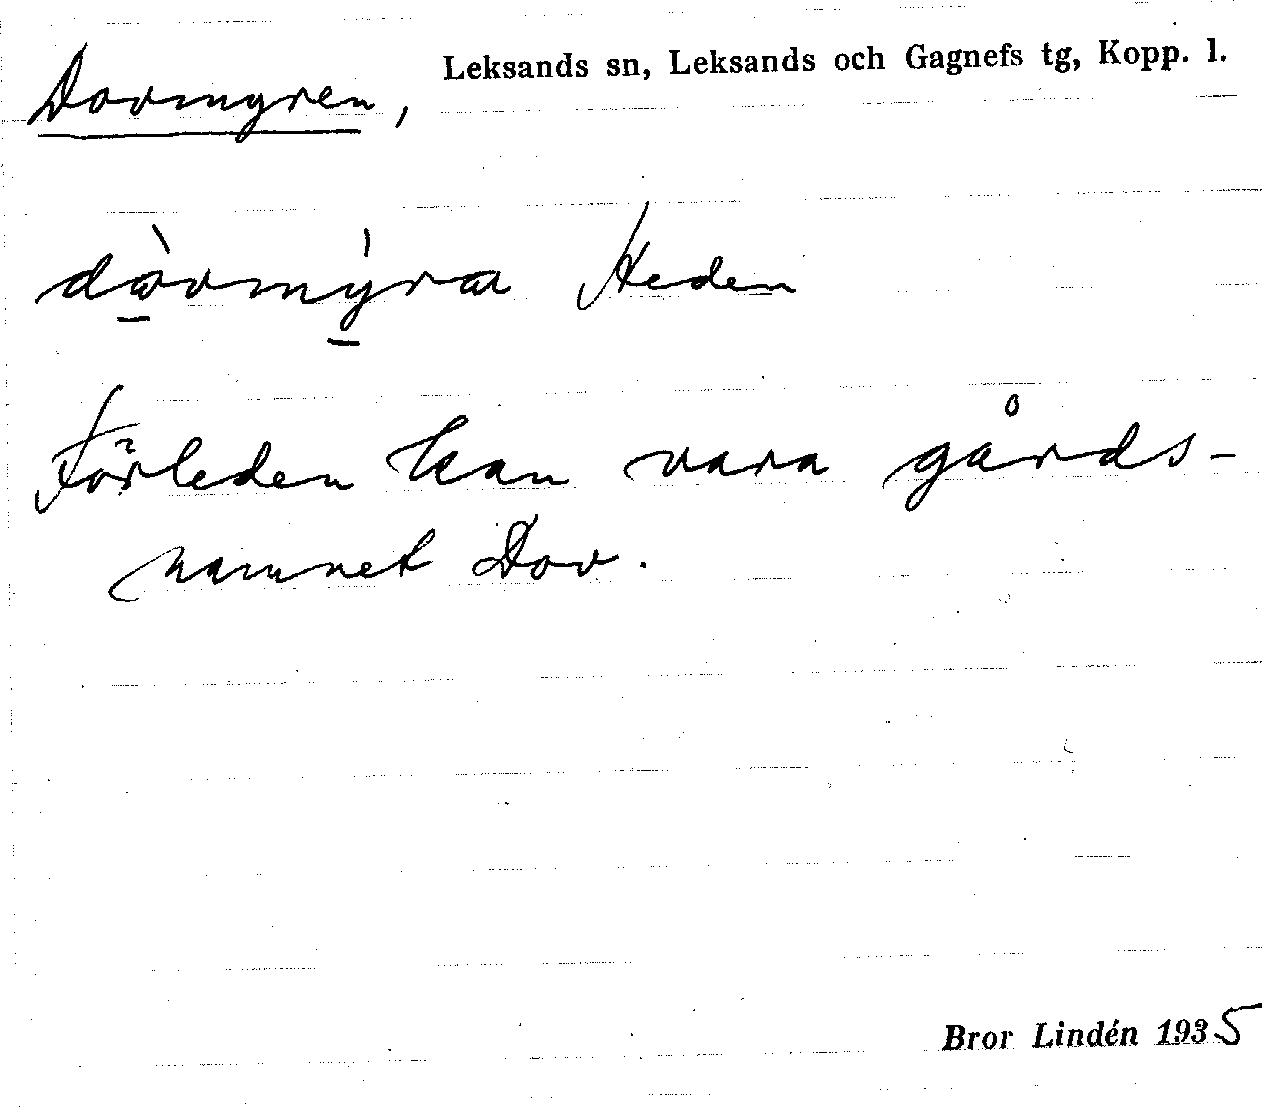 Dovmyren, Leksands sn, Leksands och Gagnefs tg, Kopp. l.
dòvmýra Heden
Förleden kan vara gårds-
namnet Dov.
Bror Lindén 1935